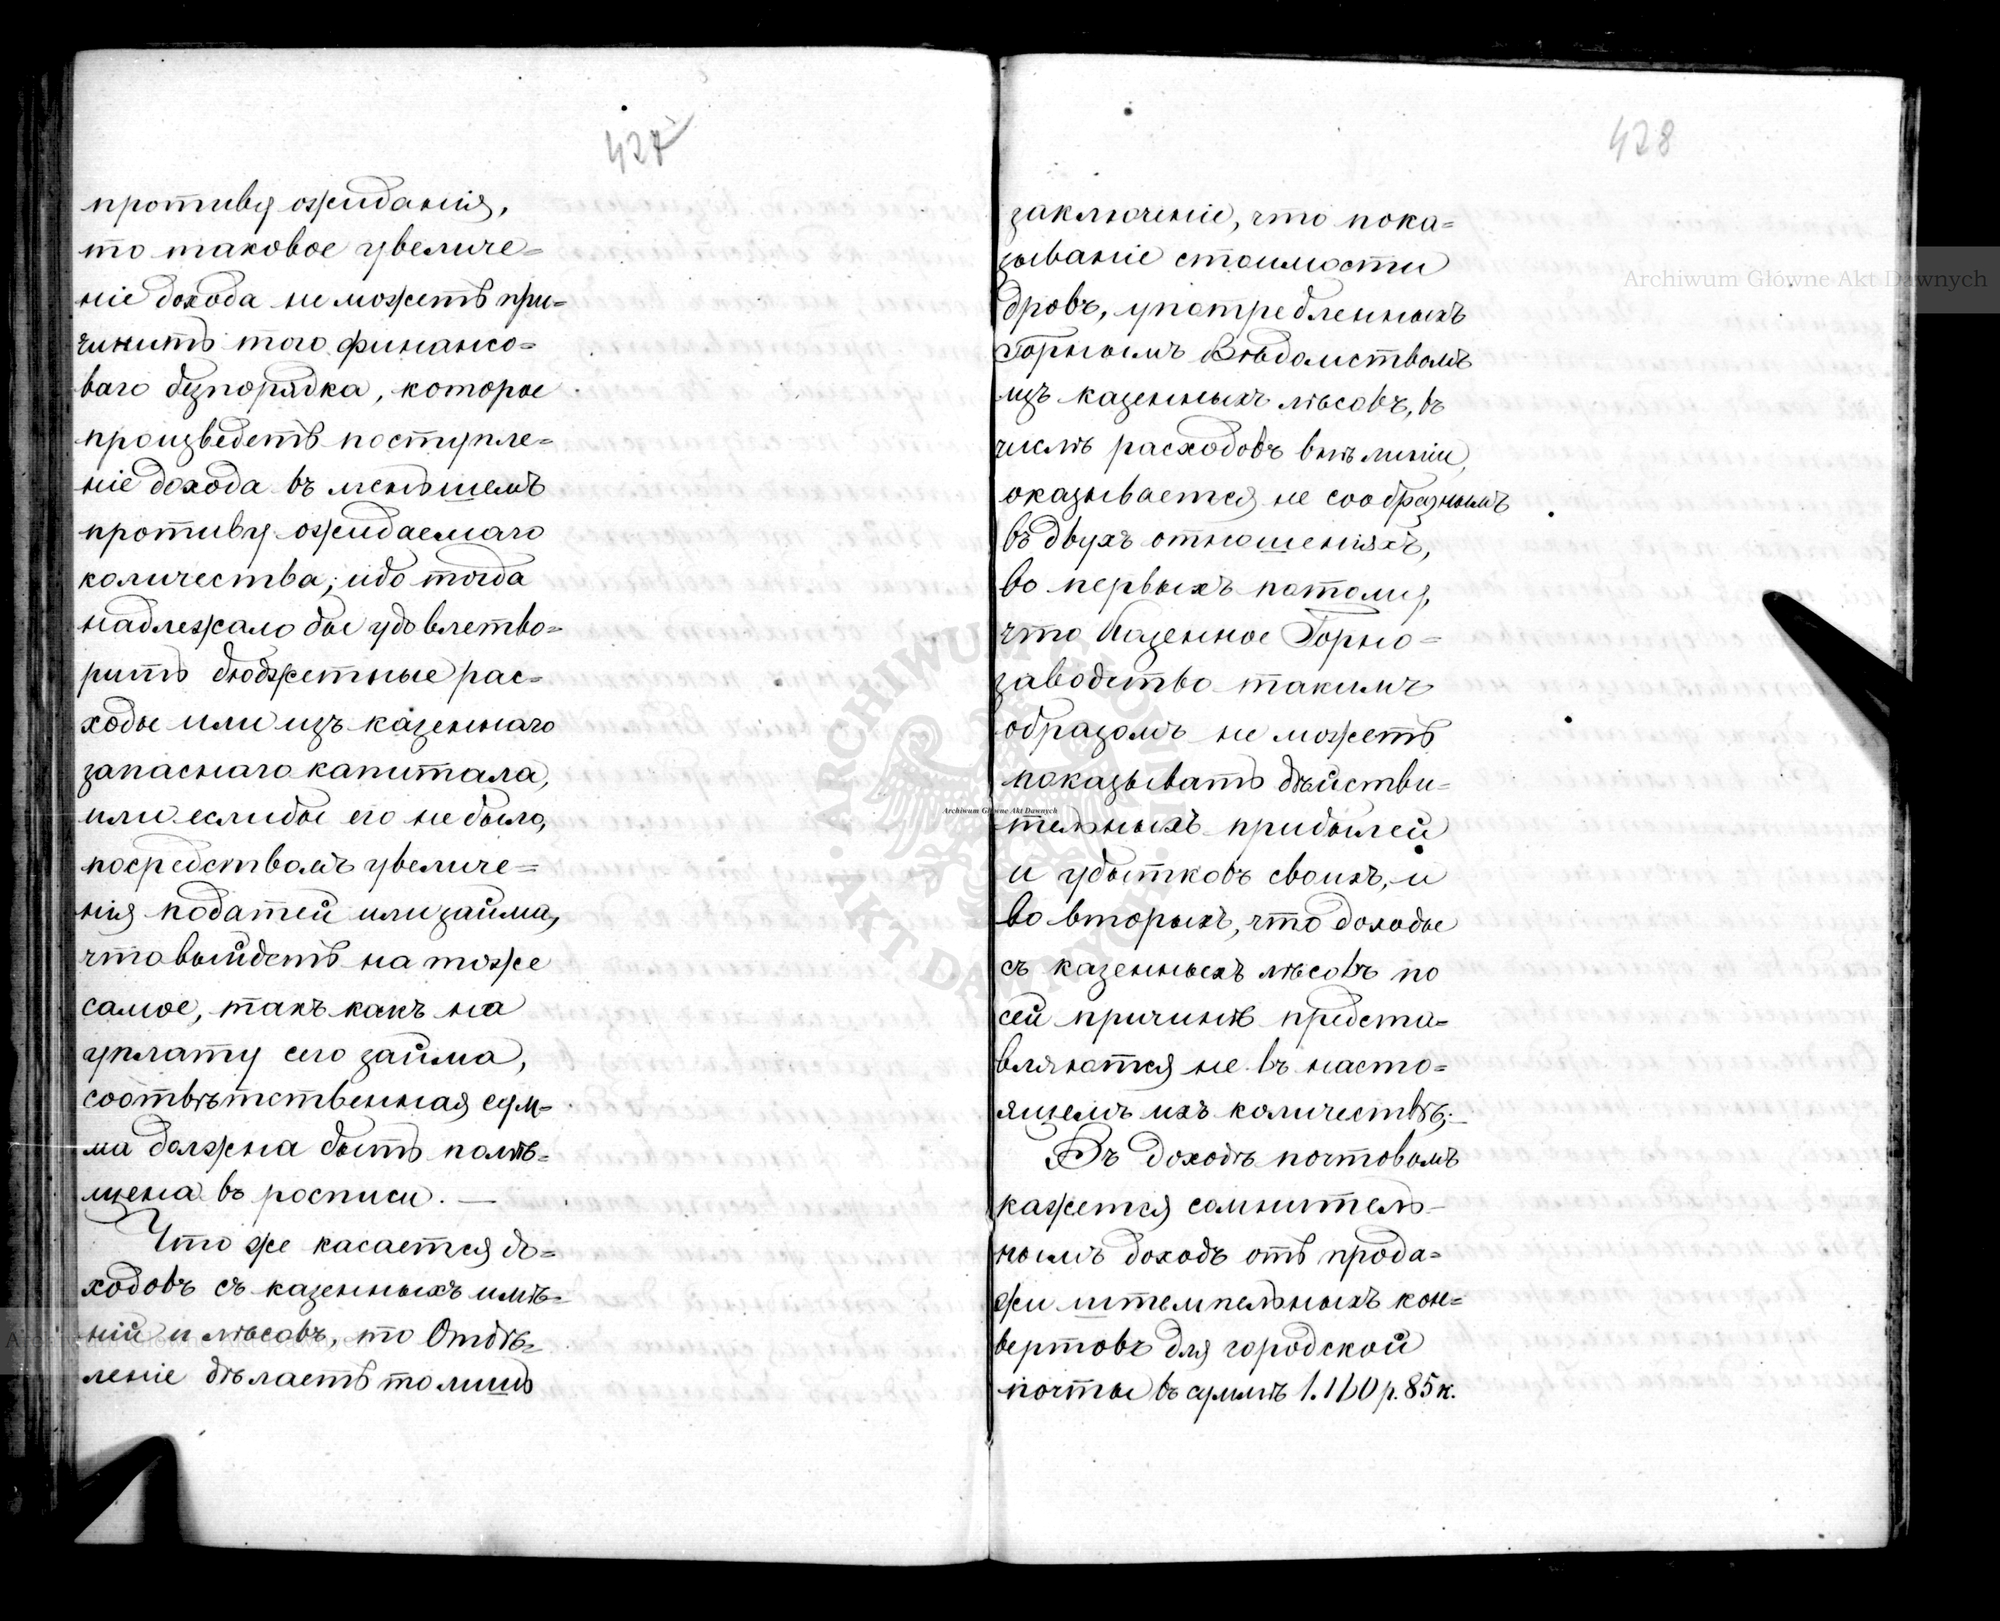 427
противу ожиданія,
то таковое увеличе=
ніе дохода не можетъ при=
чинить того финансо=
ваго безпорядка, которое
произведетъ поступле=
ніе дохода въ меньшемъ
противу ожидаемаго
количества; ибо тогда
надлежало бы удовлетво=
рить бюджетные рас=
ходы или изъ казеннаго
запаснаго капитала,
или еслибы его не было,
посредствомъ увеличе=
нія податей или займа,
что выйдетъ на тоже
самое, такъ какъ на
уплату сего займа,
соотвѣтственная сум=
ма должна быть помѣ=
щена въ росписи. —
Что же касается до=
ходовъ съ казенныхъ имѣ=
ній и лѣсовъ, то Отдѣ=
леніе дѣлаетъ то лишь
428
заключеніе, что пока=
зываніе стоимости
дровъ, употребленныхъ
Горнымъ Вѣдомствомъ
изъ казенныхъ лѣсовъ, въ
числѣ расходовъ внѣ линіи,
оказывается не сообразнымъ
въ двухъ отношеніяхъ,
во первыхъ потому,
что Казенное Горно=
заводство такимъ
образомъ не можетъ
показывать дѣйстви=
тельныхъ прибылей
и убытковъ своихъ, и
во вторыхъ, что доходы
съ казенныхъ лѣсовъ по
сей причинѣ предста=
вляются не въ насто=
ящемъ ихъ количествѣ; —
Въ доходѣ почтовомъ
кажется сомнитель—
нымъ доходъ отъ прода=
жи штемпельныхъ кон=
вертовъ для городской
почты въ суммѣ 1.110 р. 85 к.
Archiwum Główne Akt Dawnych
ARCHIWUM GŁÓWNE · AKT DAWNYCH ·
Archiwum Główne Akt Dawnych
Archiwum Główne Akt Dawnych